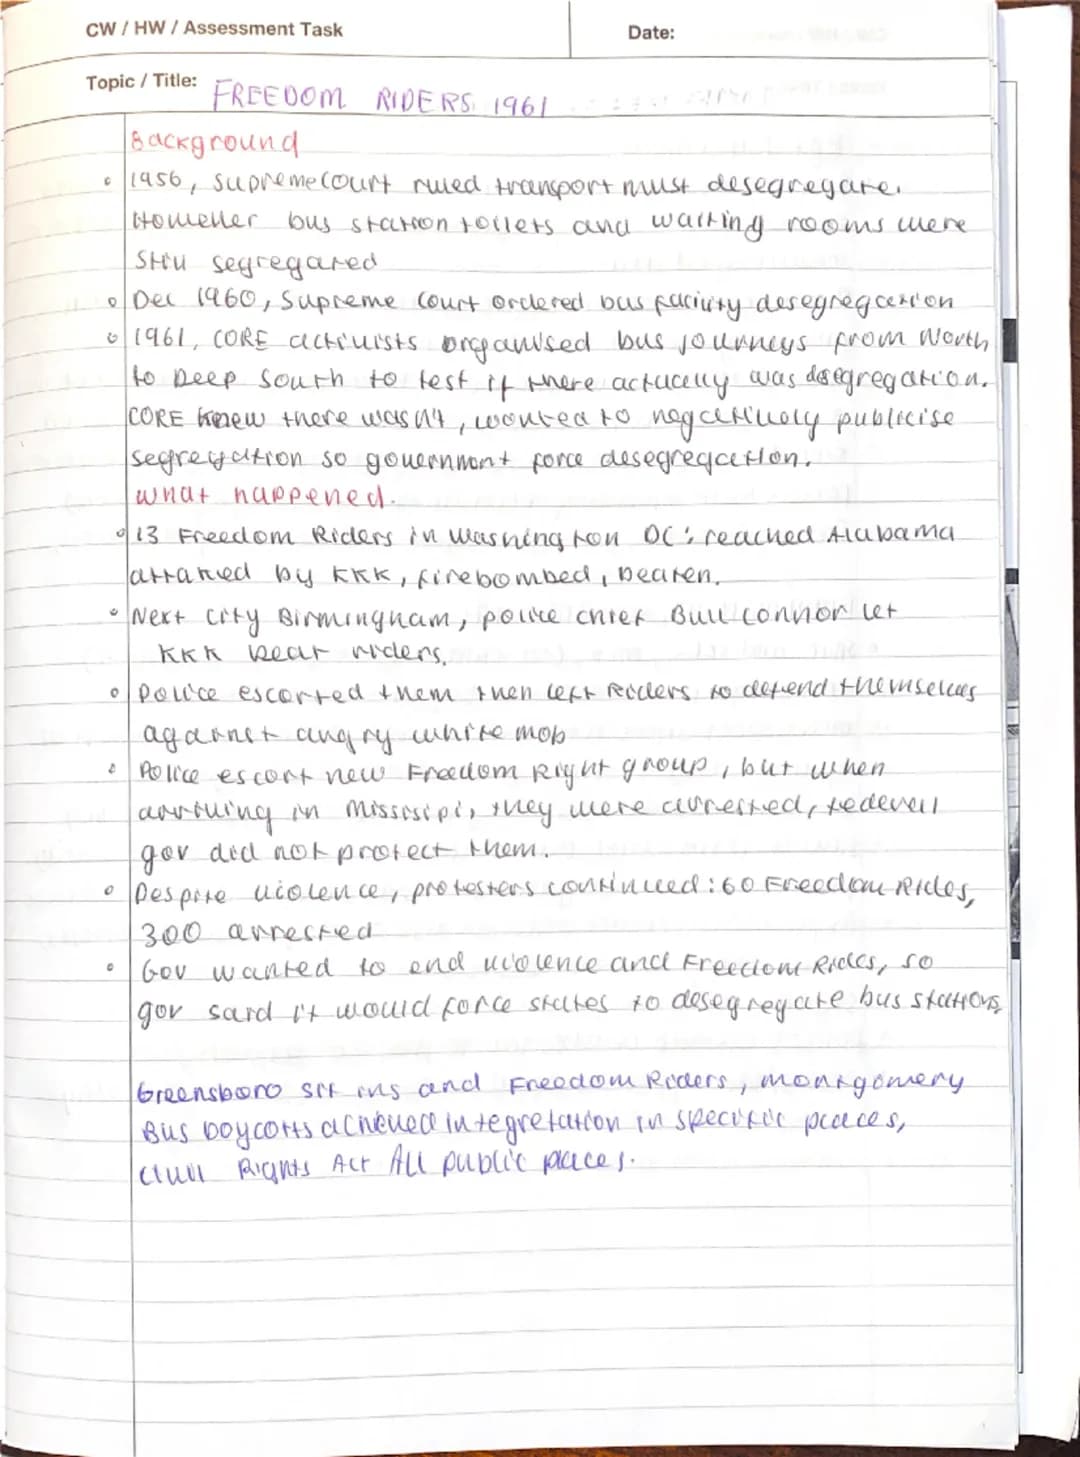 CW / HW / Assessment Task
Date:
Topic / Title: FREEDOM RIDERS 1961
Background
1956, supreme court ruled transport must desegregate.
However bus station toilets and waiting rooms were
still segregated
Dec 1960, Supreme Court ordered bus facility desegregation
1961, CORE activists organised bus journeys from North
to Deep South to test if there actually was desegregation.
CORE knew there wasn't, wanted to negatively publicise
segregation so government force desegregation.
what happened.
13 Freedom Riders in Washington DC: reached Alabama
attacked by KKK, firebombed, beaten.
Next city Birmingham, police chief Bull Connor let
KKK beat riders.
police escorted them then left Riders to defend themselves
against angry white mob
Police escort new Freedom Right group, but when
arriving in Missisipi, they were arrested, federall
gov did not protect them.
Despite violence, protesters continued: 60 Freedom Rides,
300 arrested
Gov wanted to end violence and Freedom Rides, so
gov said it would force states to desegregate bus stations
Greensboro sit ins and Freedom Riders, montgomery
Bus boycotts achieved integretation in specific places,
civil Rights Act All public places.